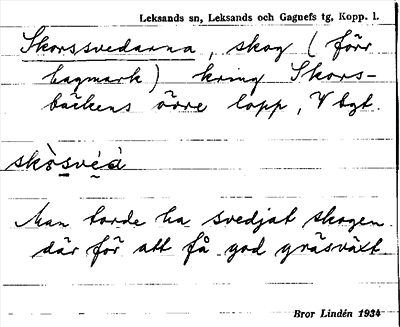 Leksands sn, Leksands och Gagnefs tg, Kopp. l.
Skorssvedarna, skog (förr
hagmark) kring Skors-
bäckens övre lopp, V bgt.
skòsvéà
Man torde ha svedjat skogen
där för att få god gräsväxt.
Bror Lindén 1934